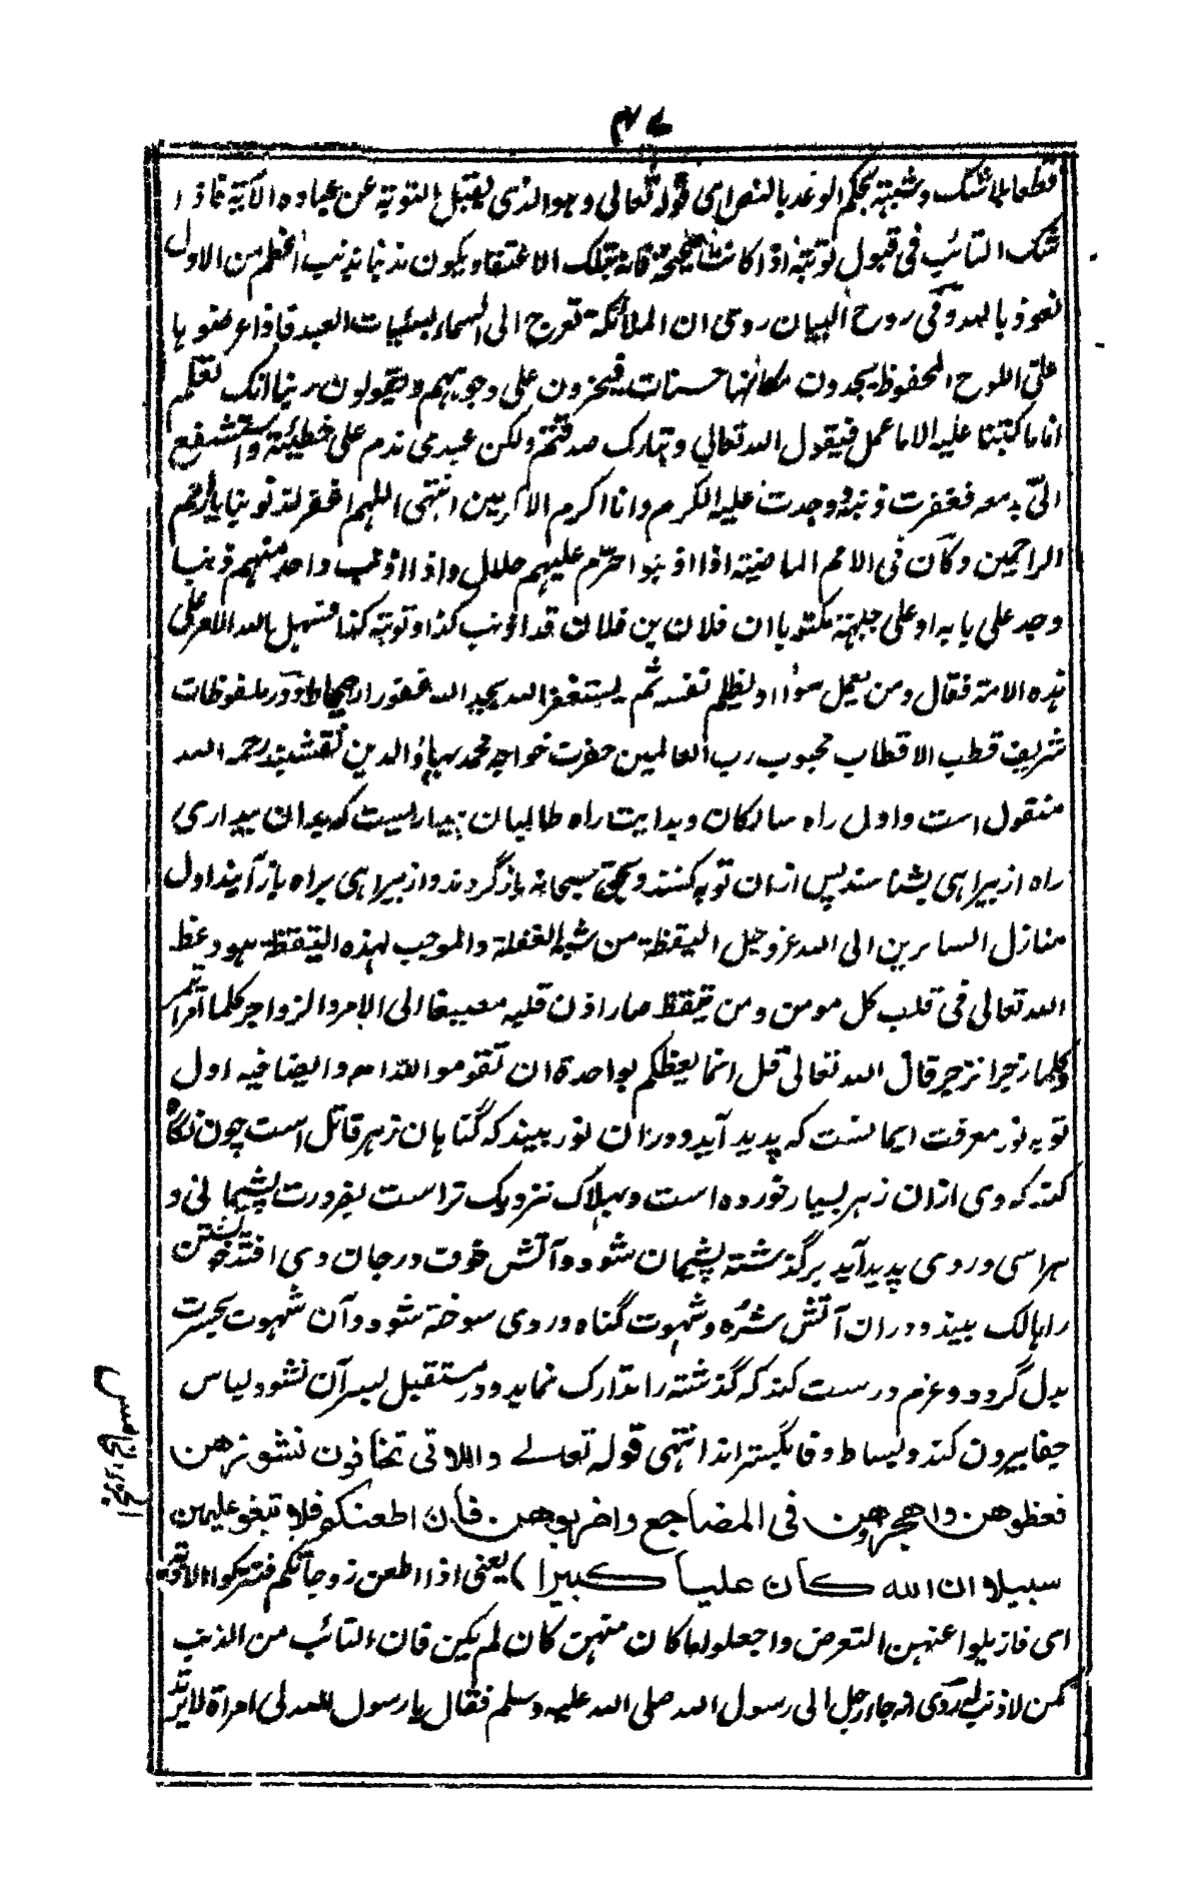 ۴۷
قطعا بلا شک و شبهة بحکم الوعد بالنص ای قوله تعالی وهو الذی یقبل التوبة عن عباده الآیة فاذا
شک التائب فی قبول توبته اذا کانت صحیحة فانه بتلک الاعتقاد یکون مذنبا بذنب اعظم من الاول
نعوذ بالله وفی روح البیان روی ان الملائکة تعرج الی السماء بسیئات العبد فاذا عرضوها
علی اللوح المحفوظ یجدون مکانها حسنات فیخرون علی وجوههم ویقولون ربنا انک تعلم
انا ما کتبنا علیه الا ما عمل فیقول الله تعالی وتبارک صدقتم ولکن عبدی ندم علی خطیئة واستشفع
الیّ بدمعه فغفرت ذنبه وجدت علیه الکرم وانا اکرم الاکرمین انتهی اللهم اغفر لنا ذنوبنا یا ارحم
الراحمین وکان فی الامم الماضیة اذا اذنبوا حرّم علیهم حلال واذا اذنب واحد منهم ذنبا
وجد علی بابه او علی جبهته مکتوبا ان فلان بن فلان قد اذنب کذا وتوبته کذا فسهل الله الامر علی
هذه الامة فقال ومن یعمل سوأ او یظلم نفسه ثم یستغفر الله یجد الله غفورا رحیما ودر ملفوظات
شریف قطب الاقطاب محبوب رب العالمین حضرت خواجه محمد بهاؤالدین نقشبند رحمه الله
منقول است واول راه سالکان وبدایت راه طالبان بیداریست که بدان بیداری
راه از بیراهی بشناسند پس ازان توبه کنند وبحق سبحانه بازگردند واز بیراهی براه باز آیند اول
منازل السایرین الی الله عز وجل الیقظة من سنة الغفلة والموجب لهذه الیقظة هو وعظ
الله تعالی فی قلب کل مومن ومن تیقظ صار اذن قلبه سمیعا الی الامر والزواجر کلما امر ائتمر
وکلما زجر انزجر قال الله تعالی قل انما یعظکم بواحدة ان تقوموا لله اه وایضا فیه اول
توبه نور معرفت ایمانست که پدید آید ودران نور بیند که گناهان زهر قاتل است چون نگاه
کند که وی ازان زهر بسیار خورده است وبهلاک نزدیک تراست بضرورت پشیمانی و
هراسی در وی پدید آید برگذشته پشیمان شود وآتش خوف در جان وی افتد خویشتن
را هالک بیند ودران آتش شره وشهوت گناه در وی سوخته شود وآن شهوت بحسرت
بدل گردد وعزم درست کند که گذشته را تدارک نماید ودر مستقبل بسر آن نشود لباس
جفا بیرون کند وبساط وفا بگستراند انتهی قوله تعالے واللاتی تخافون نشوزهن
فعظوهن واهجروهن فی المضاجع واضربوهن فان اطعنکم فلا تبغو علیهن
سبیلا ان الله کان علیا کبیرا) یعنی اذا اطعن زوجاتکم فترکوا الاذیة
ای فازیلوا عنهن التعرض واجعلوا ما کان منهن کان لم یکن فان التائب من الذنب
کمن لا ذنب له روی انه جاء رجل الی رسول الله صلی الله علیه وسلم فقال یا رسول الله لی امراة لا ترد